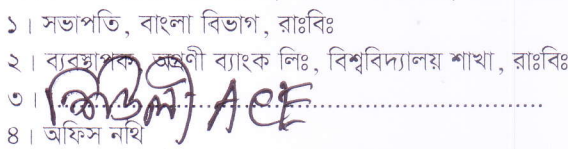 ১। সভাপতি, বাংলা বিভাগ, রাঃবিঃ
২। ব্যবস্থাপক, অগ্রণী ব্যাংক লিঃ, বিশ্ববিদ্যালয় শাখা, রাঃবিঃ
৩। ACE ..............................
৪। অফিস নথি